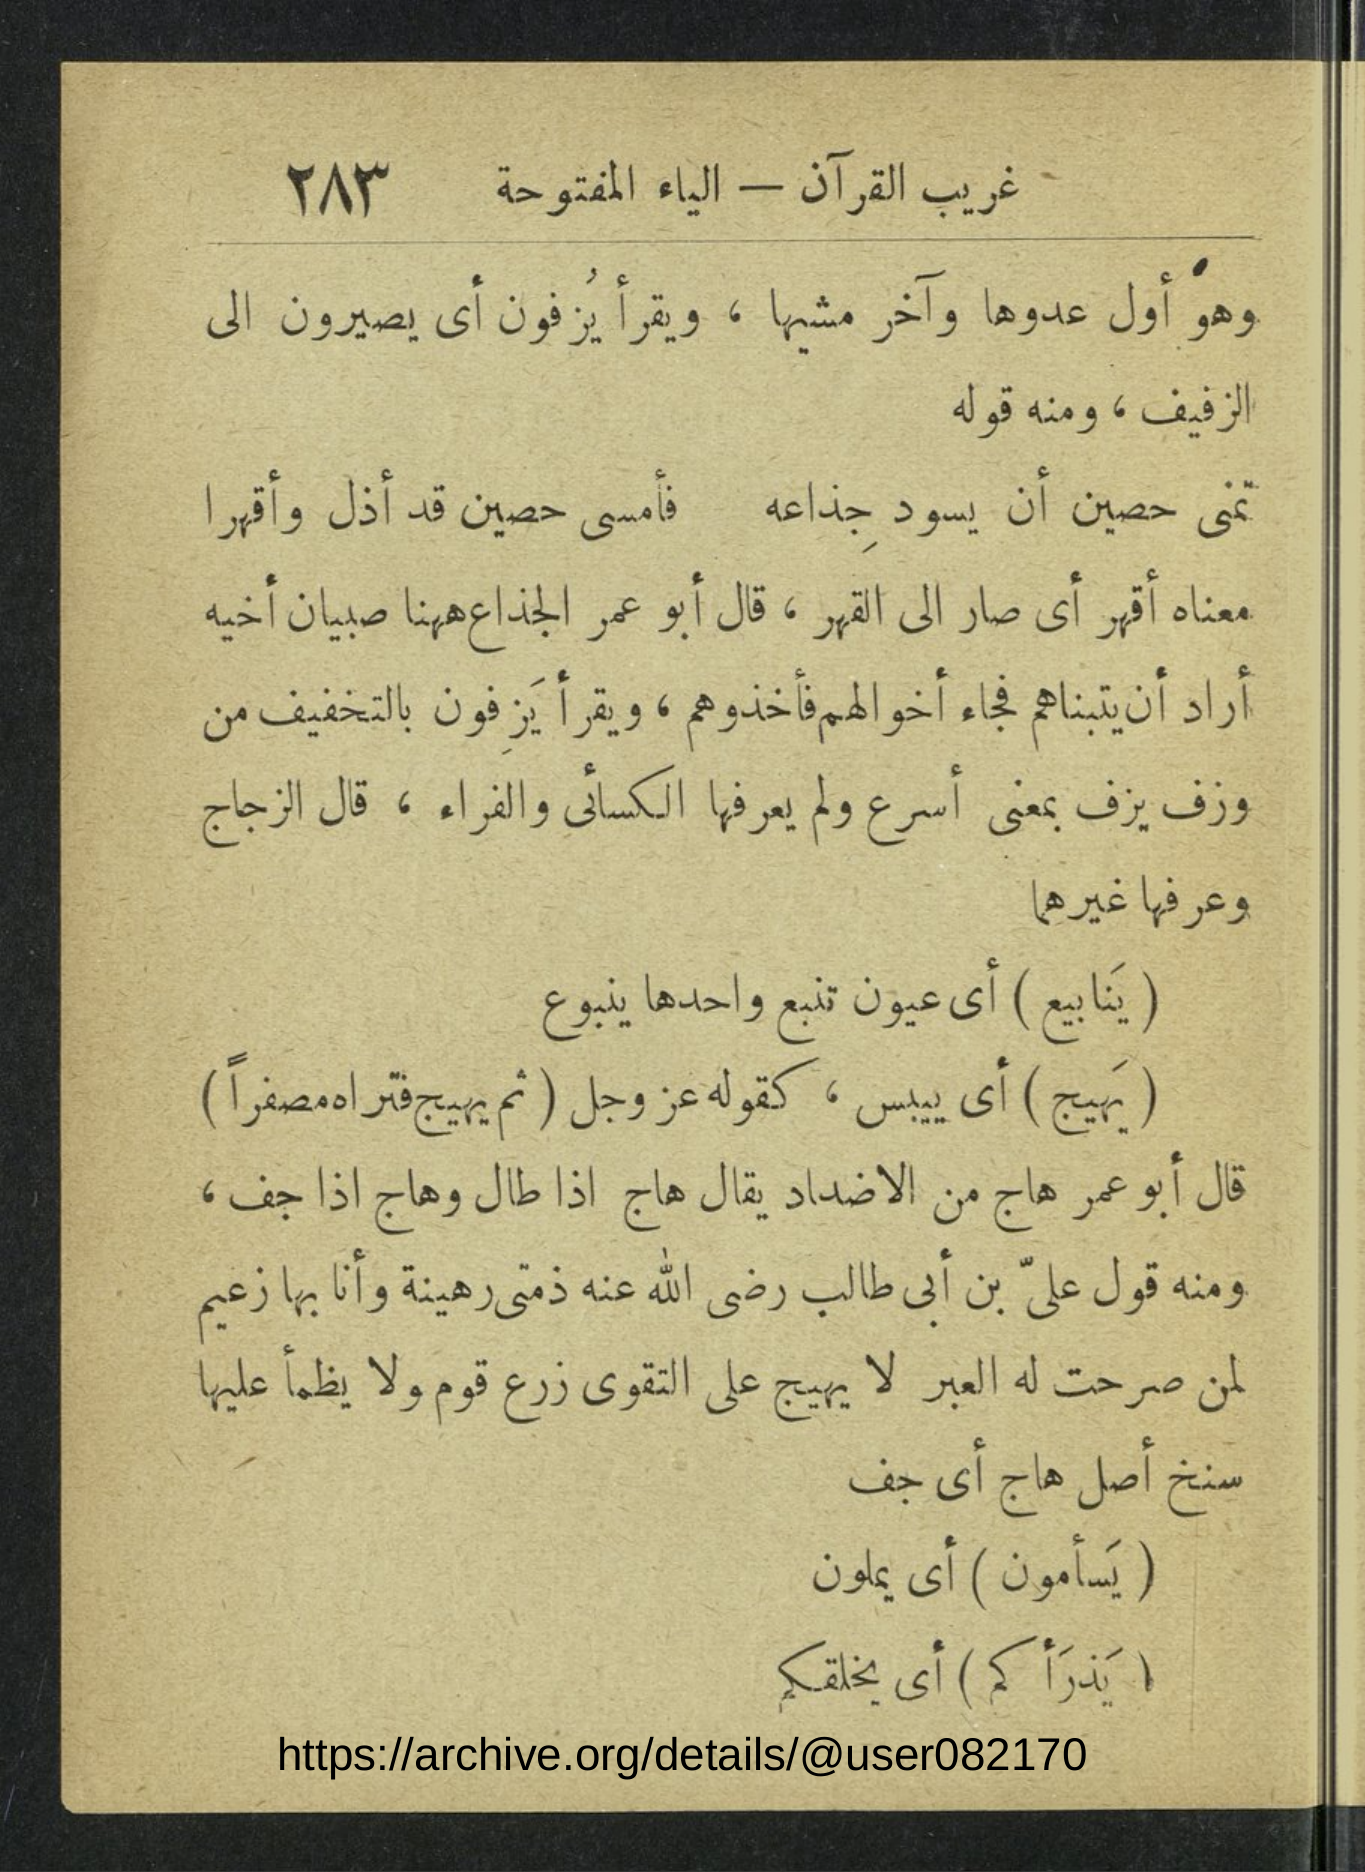 غريب القرآن — الياء المفتوحة ٢٨٣
وهو أول عدوها وآخر مشيها ، ويقرأ يُزفون أى يصيرون الى
الزفيف ، ومنه قوله
تمنى حصين أن يسود جِذاعه فأمسى حصين قد أذل وأقهرا
معناه أقهر أى صار الى القهر ، قال أبو عمر الجذاع ههنا صبيان أخيه
أراد أن يتبناهم فجاء أخوالهم فأخذوهم ، ويقرأ يَزِفون بالتخفيف من
وزف يزف بمعنى أسرع ولم يعرفها الكسائى والفراء ، قال الزجاج
وعرفها غيرهما
( يَنابيع ) أى عيون تنبع واحدها ينبوع
( يَهيج ) أى ييبس ، كقوله عز وجل ( ثم يهيج فتراه مصفراً )
قال أبو عمر هاج من الاضداد يقال هاج اذا طال وهاج اذا جف ،
ومنه قول علىّ بن أبى طالب رضى الله عنه ذمتى رهينة وأنا بها زعيم
لمن صرحت له العبر لا يهيج على التقوى زرع قوم ولا يظمأ عليها
سنخ أصل هاج أى جف
( يَسأمون ) أى يملون
( يَذرَأكم ) أى يخلقكم
https://archive.org/details/@user082170